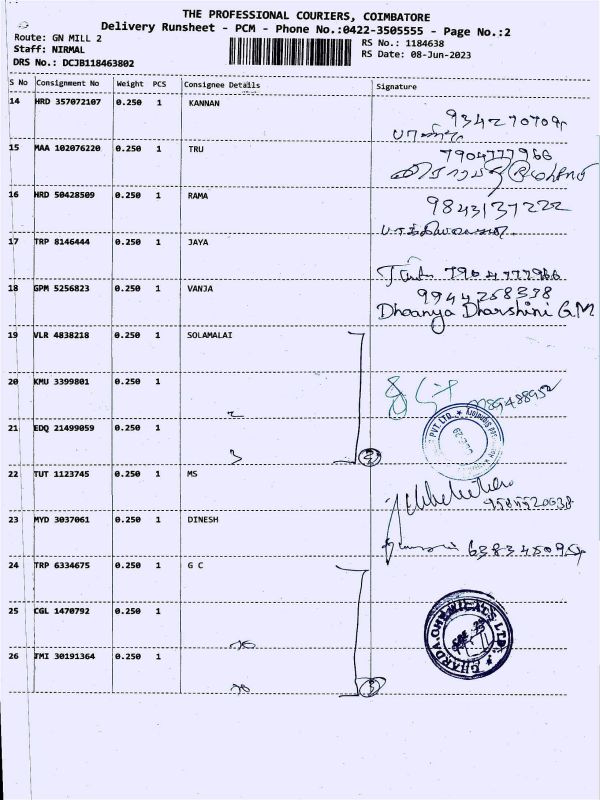 THE PROFESSIONAL COURIERS, COIMBATORE
Delivery Runsheet - PCM - Phone No.:0422-3505555 - Page No.:2
Route: GN MILL 2
RS No.: 1184638
Staff: NIRMAL
RS Date: 08-Jun-2023
DRS No.: DCJB118463802
S No Consignment No Weight PCS Consignee Details Signature
14 HRD 357072107 0.250 1 KANNAN
15 MAA 102076220 0.250 1 TRU
7904777966
16 HRD 50428509 0.250 1 RAMA
9843137222
17 TRP 8146444 0.250 1 JAYA
7904777966
18 GPM 5256823 0.250 1 VANJA
9944258338
Dhaanya Dharshini G.M
19 VLR 4838218 0.250 1 SOLAMALAI
20 KMU 3399801 0.250 1
21 EDQ 21499059 0.250 1
PVT LTD.
22 TUT 1123745 0.250 1 MS
23 MYD 3037061 0.250 1 DINESH
24 TRP 6334675 0.250 1 G C
25 CGL 1470792 0.250 1
26 TMI 30191364 0.250 1
3